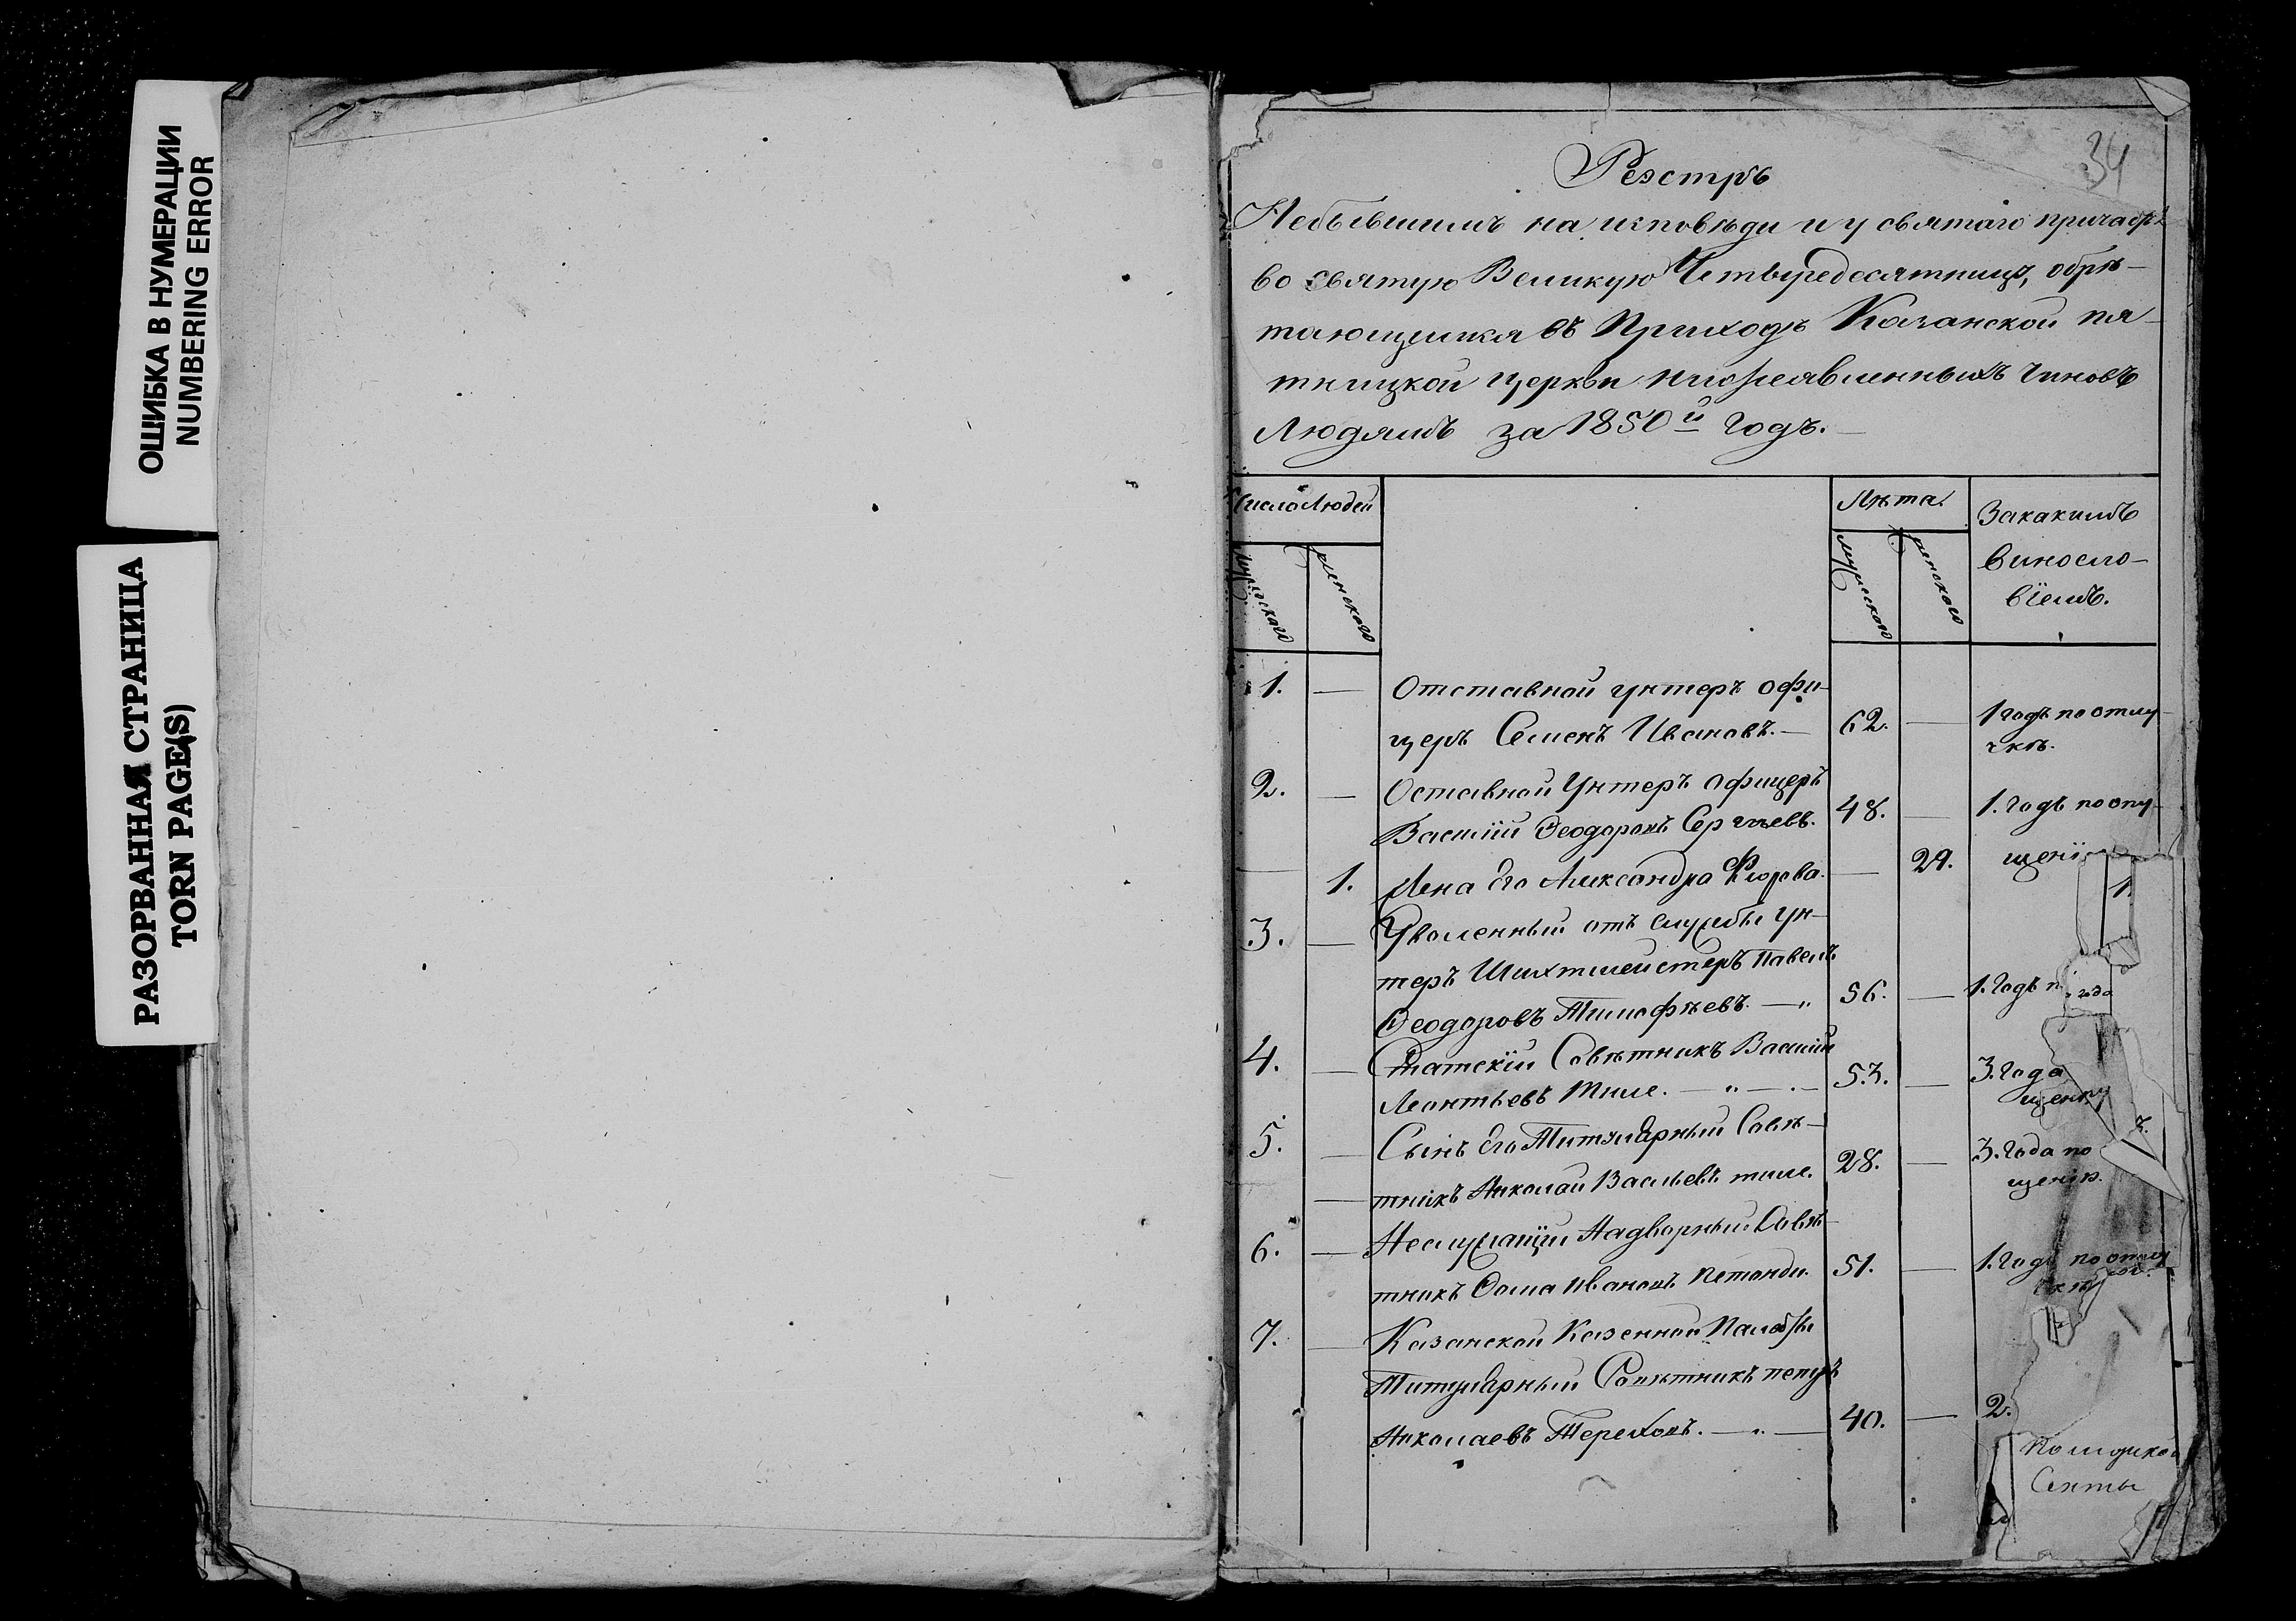 ОШИБКА В НУМЕРАЦИИ
NUMBERING ERROR
РАЗОРВАННАЯ СТРАНИЦА
TORN PAGE(S)
34
Реэстръ
Небывшимъ на исповѣди и у святаго
во святую Великую Четыредесятницу, обрѣ-
тающимся въ Приходѣ Казанской пя-
тницкой церкви чиновъ
Людямъ за 1850й годъ.
Число Людей
Лѣта
Закакимъ
виносло-
віемъ.
мужескаго
женскаго
мужескаго
женскаго
1. — Отставной унтеръ офи-
церъ Семенъ Ивановъ. — 62. — 1 годъ по отлу-
чкѣ.
2. — Оставной Унтеръ офицеръ
Василій Ѳеодоровъ Сергѣевъ. 48. — 1. годъ по опу-
щені
— 1. Жена Его Александра — 29.
1.
3. — Уволенный отъ службы Ун-
теръ Шихтмейстеръ Павелъ
Ѳеодоровъ Тимофѣевъ. — „ 56. — 1. Годъ п
года
4. — Статскій Совѣтникъ Василій
Леонтьевъ Тиле. — „ — 53. — 3. Года
5. — Сынъ Его Титулярный Совѣ-
тникъ Николай Васильевъ тиле. 28. — 3. Года по
щенію.
6. — Неслужащій Надворный Совѣ-
тникъ Ѳома Ивановъ Петонди. 51. — 1. Годъ по отлу
чкѣ
7. — Казанской Казенной Палаты
Титулярный Совѣтникъ петръ
Николаевъ Тереховъ. — „ — 40. — 2.
Секты